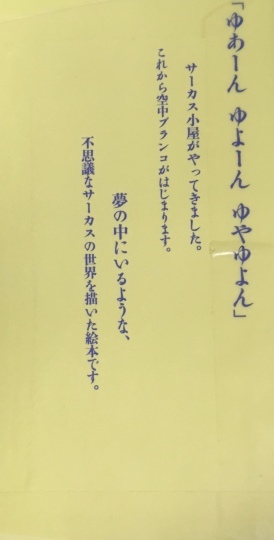 「ゆあーん ゆよーん ゆやゆよん」
サーカス小屋がやってきました。
これから空中ブランコがはじまります。
夢の中にいるような、
不思議なサーカスの世界を描いた絵本です。